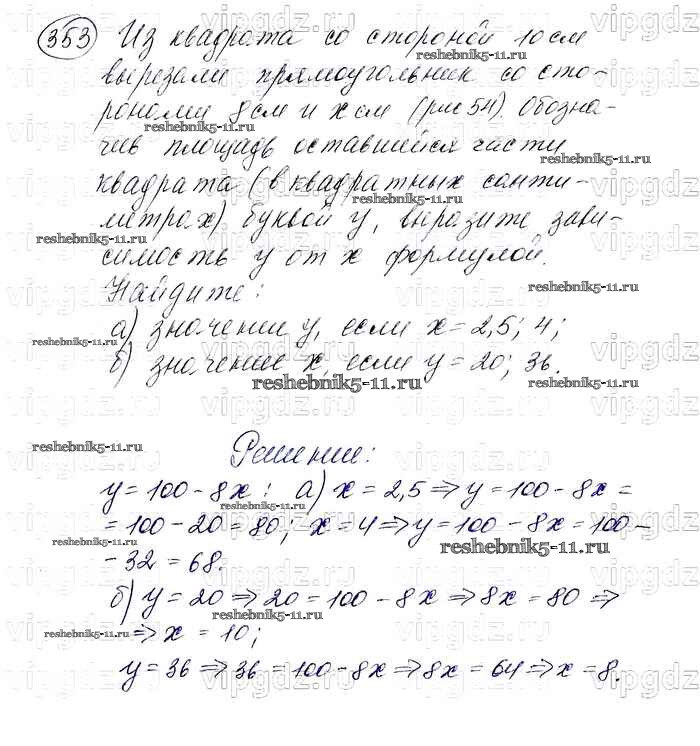 353 Из квадрата со стороной 10 см
вырезали прямоугольник со сто-
ронами 8 см и x см (рис 54). Обозна-
reshebnik5-11.ru reshebnik5-11.ru
чив площадь оставшейся части
квадрата (в квадратных санти-
метрах) буквой y, выразите зави-
симость y от x формулой.
Найдите:
а) значении y, если x = 2,5; 4;
б) значение x, если y = 20; 36.
reshebnik5-11.ru
Решение:
y = 100 - 8x: а) x = 2,5 ⇒ y = 100 - 8x =
= 100 - 20 = 80; x = 4 ⇒ y = 100 - 8x = 100 -
- 32 = 68.
б) y = 20 ⇒ 20 = 100 - 8x ⇒ 8x = 80 ⇒
⇒ x = 10;
y = 36 ⇒ 36 = 100 - 8x ⇒ 8x = 64 ⇒ x = 8.
vipgdz.com